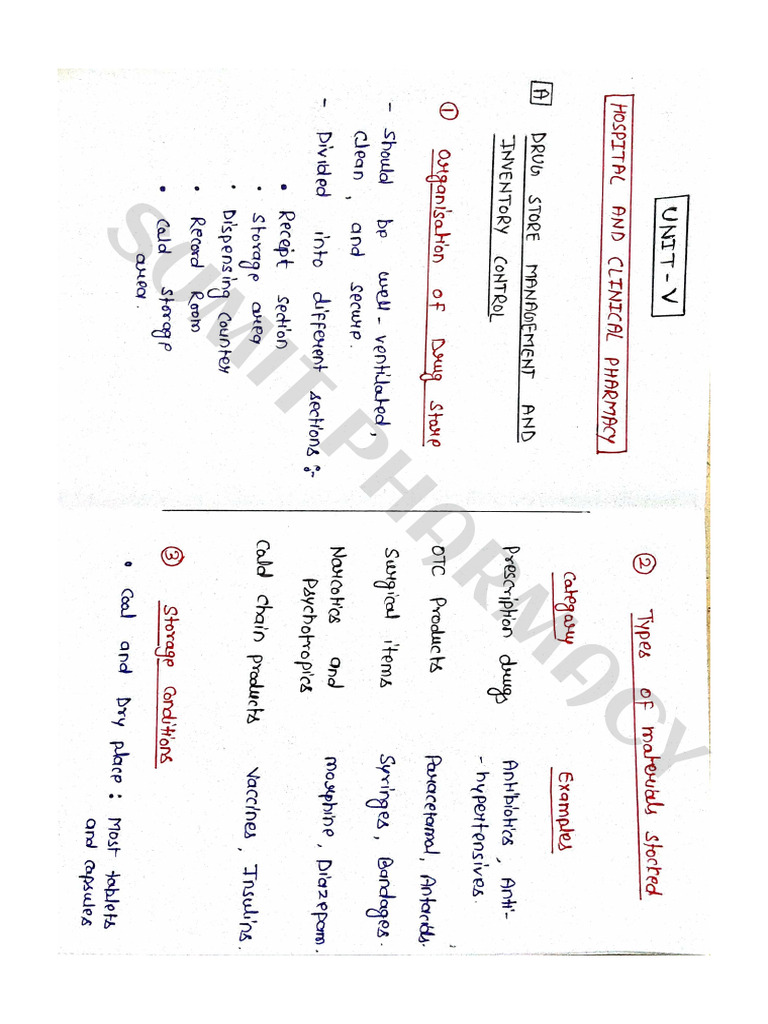 UNIT-V
HOSPITAL AND CLINICAL PHARMACY
A DRUG STORE MANAGEMENT AND
INVENTORY CONTROL
① Organisation of Drug Store
- Should be well-ventilated,
clean, and secure.
- Divided into different sections :-
• Receipt section
• Storage area
• Dispensing counter
• Record Room
• Cold storage
area.
② Types of materials stocked
Category Examples
Prescription drugs Antibiotics, Anti-
-hypertensives.
OTC Products Paracetamol, Antacids.
Surgical items Syringes, Bandages.
Narcotics and Morphine, Diazepam.
Psychotropics
Cold chain products Vaccines, Insulins.
③ Storage Conditions
• Cool and Dry place : Most tablets
and capsules
SUMIT PHARMACY